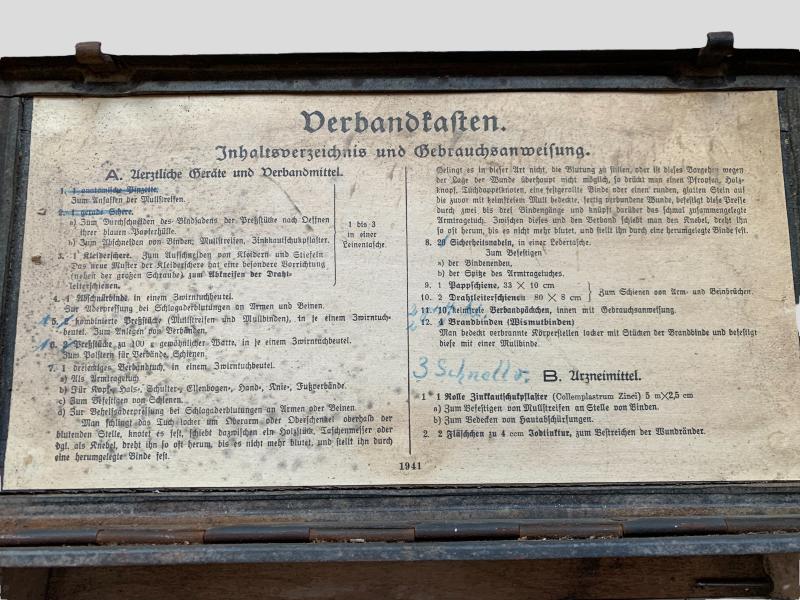 Verbandkasten.
Inhaltsverzeichnis und Gebrauchsanweisung.
A. Aerztliche Geräte und Verbandmittel.
1. 1 anatomische Pinzette.
Zum Anfassen der Mullstreifen.
2. 1 gerade Schere.
a) Zum Durchschneiden des Bindfadens der Preßstücke nach Oeffnen
ihrer blauen Papierhülle.
b) Zum Abschneiden von Binden, Mullstreifen, Zinkkautschukpflaster.
3. 1 Kleiderschere. Zum Aufschneiden von Kleidern und Stiefeln
Das neue Muster der Kleiderschere hat eine besondere Vorrichtung
(neben der großen Schraube) zum Abkneifen der Draht-
leiterschienen.
1 bis 3
in einer
Leinentasche.
4. 1 Abschnürbinde, in einem Zwirntuchbeutel.
Zur Aderpressung bei Schlagaderblutungen an Armen und Beinen.
5. 2 kombinierte Preßstücke (Mullstreifen und Mullbinden), in je einem Zwirntuch-
beutel. Zum Anlegen von Verbänden.
6. 2 Preßstücke zu 100 g gewöhnlicher Watte, in je einem Zwirntuchbeutel.
Zum Polstern für Verbände, Schienen.
7. 1 dreieckiges Verbandtuch, in einem Zwirntuchbeutel.
a) Als Armtragetuch.
b) Für Kopf-, Hals-, Schulter-, Ellenbogen-, Hand-, Knie-, Fußverbände.
c) Zum Befestigen von Schienen.
d) Zur Behelfsaderpressung bei Schlagaderblutungen an Armen oder Beinen.
Man schlingt das Tuch locker um Oberarm oder Oberschenkel oberhalb der
blutenden Stelle, knotet es fest, schiebt dazwischen ein Holzstück, Taschenmesser oder
dgl. als Knebel, dreht ihn so oft herum, bis es nicht mehr blutet, und stellt ihn durch
eine herumgelegte Binde fest.
Gelingt es in dieser Art nicht, die Blutung zu stillen, oder ist dieses Vorgehen wegen
der Lage der Wunde überhaupt nicht möglich, so drückt man einen Pfropfen, Holz-
knopf, Tuchdoppelknoten, eine festgerollte Binde oder einen runden, glatten Stein auf
die zuvor mit keimfreiem Mull bedeckte, fertig verbundene Wunde, befestigt diese Presse
durch zwei bis drei Bindengänge und knüpft darüber das schmal zusammengelegte
Armtragetuch. Zwischen dieses und den Verband schiebt man den Knebel, dreht ihn
so oft herum, bis es nicht mehr blutet, und stellt ihn durch eine herumgelegte Binde fest.
8. 20 Sicherheitsnadeln, in einer Ledertasche.
Zum Befestigen
a) der Bindenenden,
b) der Spitze des Armtragetuches.
9. 1 Pappschiene, 33 × 10 cm
10. 2 Drahtleiterschienen 80 × 8 cm
Zum Schienen von Arm- und Beinbrüchen.
11. 10 keimfreie Verbandpäckchen, innen mit Gebrauchsanweisung.
12. 4 Brandbinden (Wismutbinden)
Man bedeckt verbrannte Körperstellen locker mit Stücken der Brandbinde und befestigt
diese mit einer Mullbinde.
3 Schnellv.
B. Arzneimittel.
1 1 Rolle Zinkkautschukpflaster (Collemplastrum Zinci) 5 m×2,5 cm
a) Zum Befestigen von Mullstreifen an Stelle von Binden.
b) Zum Bedecken von Hautabschürfungen.
2. 2 Fläschchen zu 4 ccm Jodtinktur, zum Bestreichen der Wundränder.
1941